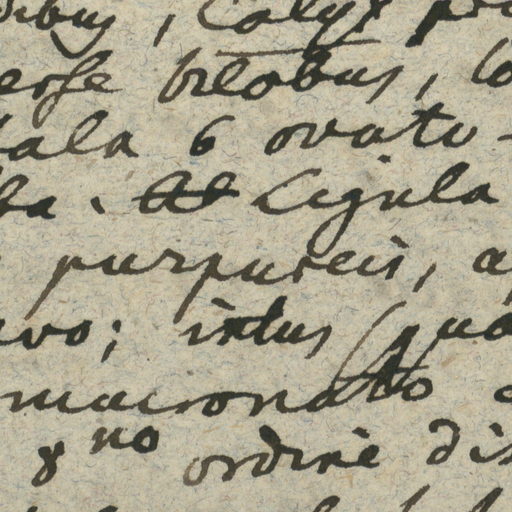 dibus, Calyx
erse bilobus,
tala 6 ovato-
ba. Ligula
purpureis, a
vo; intus (qua
mucronato
8no ordine dis